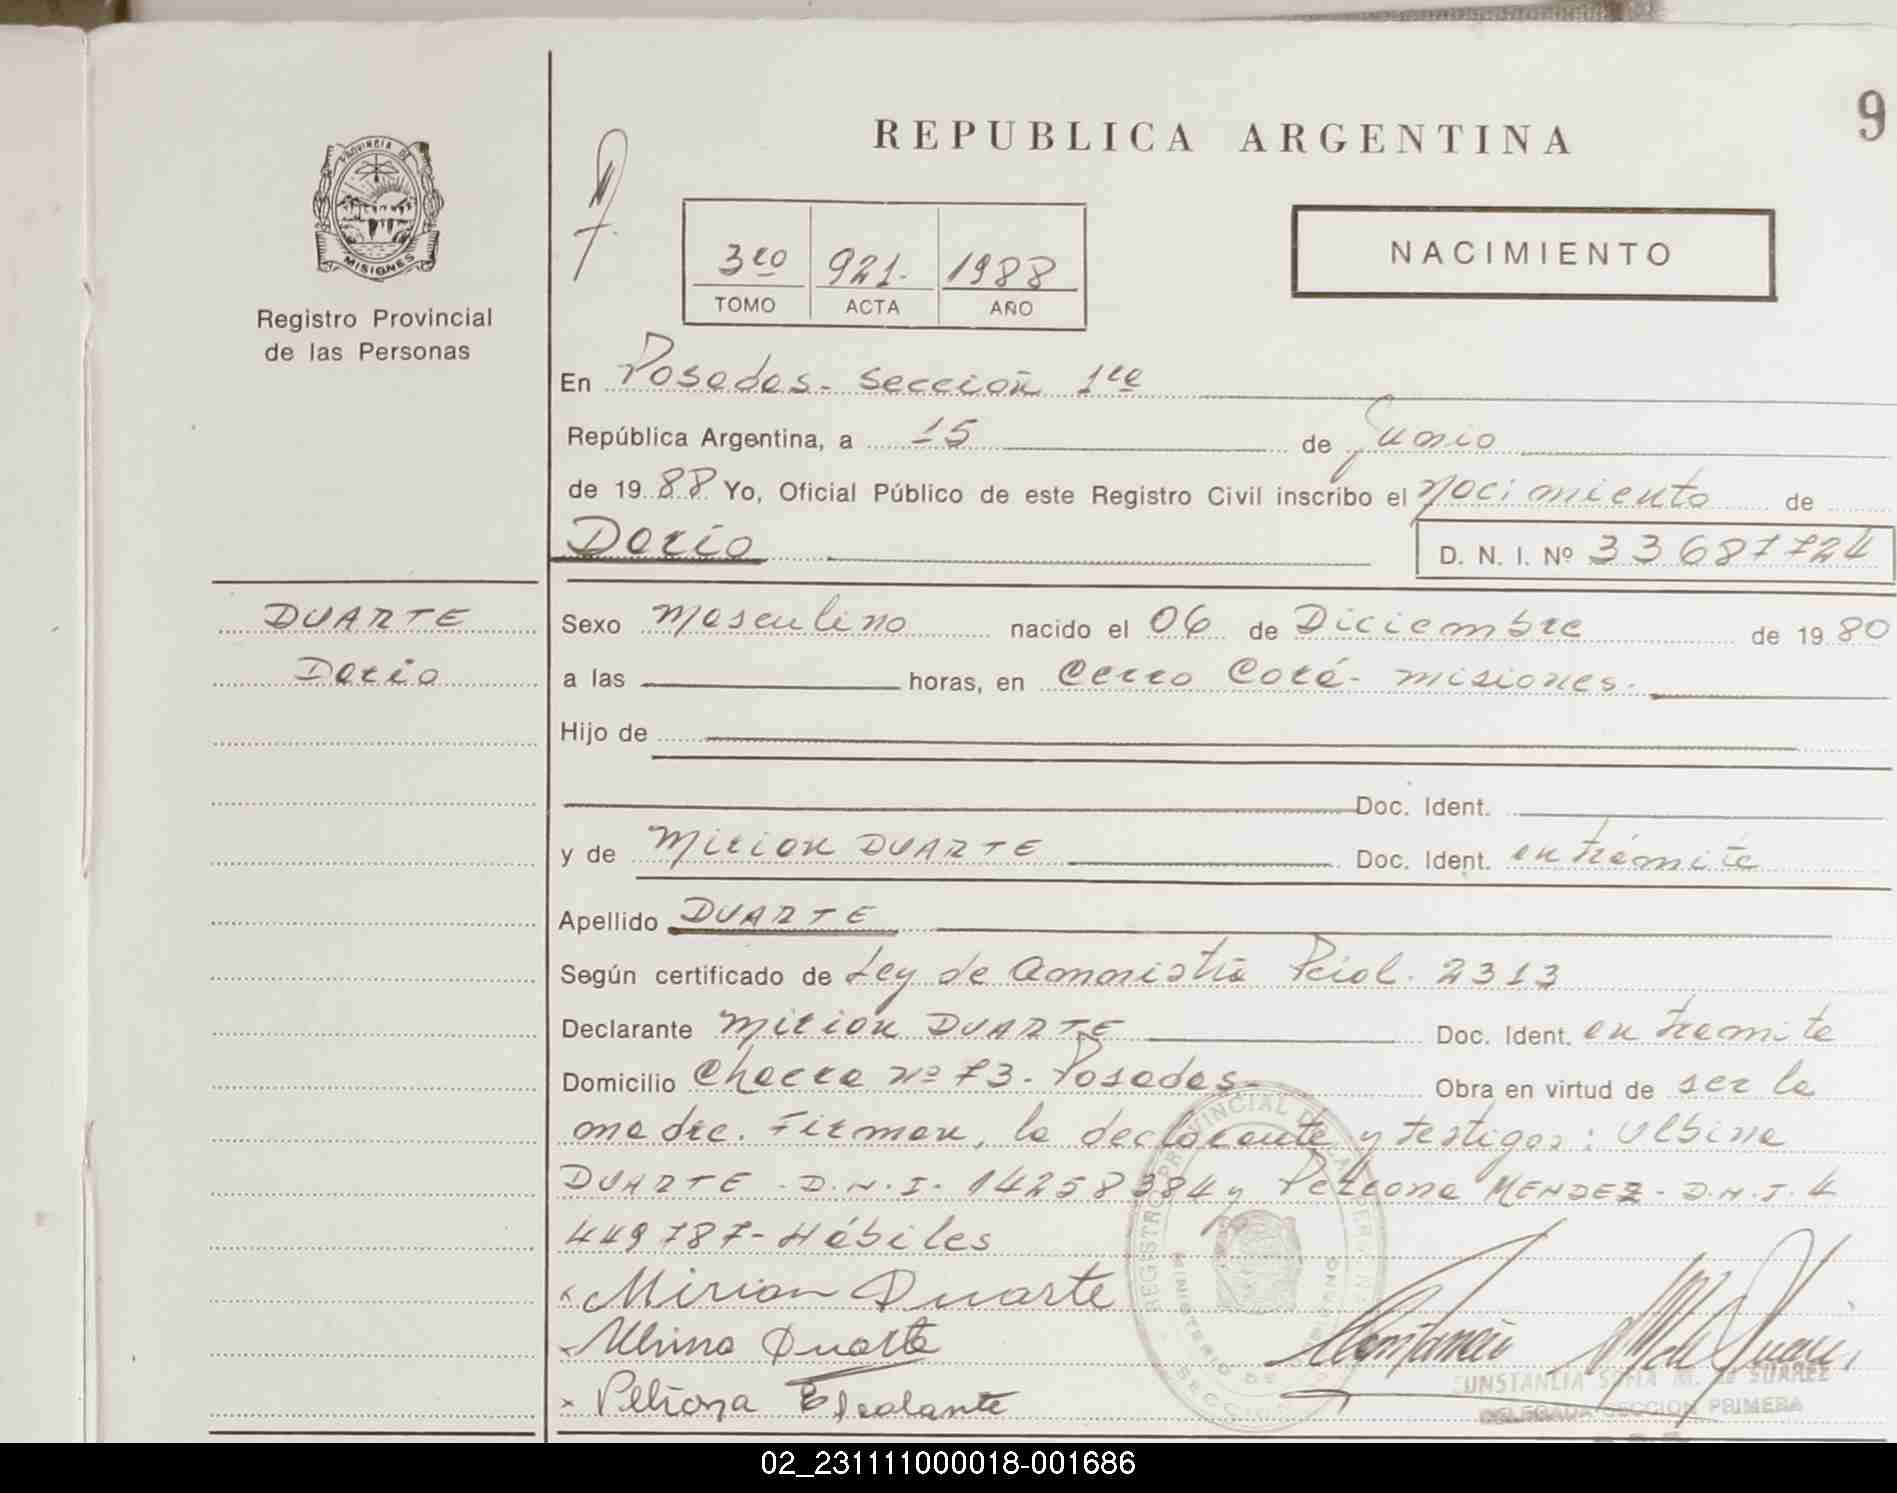 REPUBLICA ARGENTINA
9
PROVINCIA DE
MISIONES
Registro Provincial
de las Personas
3ro 921. 1988
TOMO ACTA AÑO
NACIMIENTO
En Posadas - sección 1ra
República Argentina, a 15 de Junio
de 1988 Yo, Oficial Público de este Registro Civil inscribo el nacimiento de
Darío
D. N. I. Nº 33687724
DUARTE
Darío
Sexo masculino nacido el 06 de Diciembre de 1980
a las horas, en Cerro Corá - misiones.
Hijo de
Doc. Ident.
y de Mirian DUARTE Doc. Ident. en trámite
Apellido DUARTE
Según certificado de Ley de amnistía Pcial. 2313
Declarante Mirian DUARTE Doc. Ident. en trámite
Domicilio Chacra nº 73 - Posadas - Obra en virtud de ser la
madre. Firman, la declarante y testigos: Ulbina
DUARTE - D.N.I. 14258384 y Petrona MENDEZ - D.N.I. 4
449787 - Hábiles
x Mirian Duarte
x Duarte
x Petrona Escalante
REGISTRO PROVINCIAL DE LAS PERSONAS
MINISTERIO DE
SECCION
CONSTANCIA SOFIA M. de SUAREZ
DELEGADA SECCION PRIMERA
02_231111000018-001686